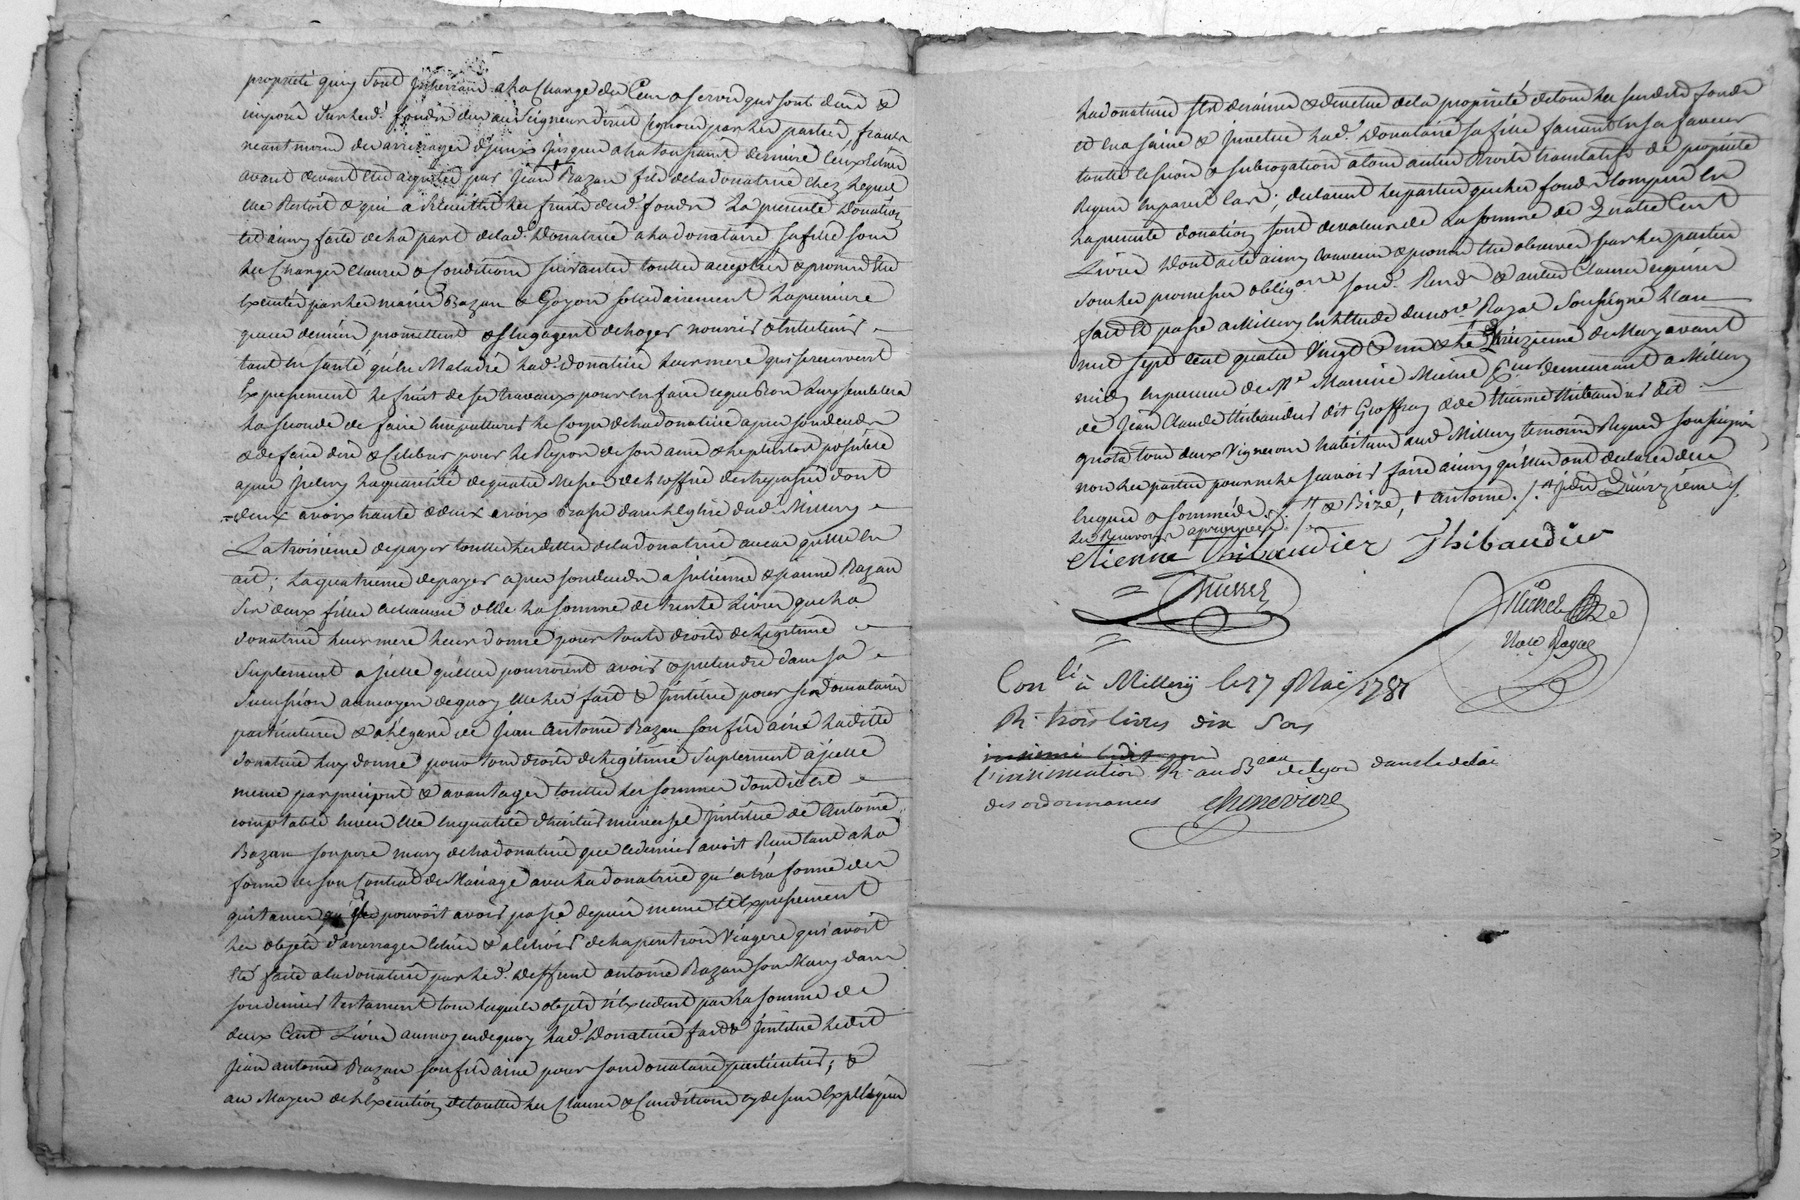 propriété qui y sont Inherants a la Charge du Cens & servis qui sont dûs &
imposé sur lesd. fonds dus au Seigneur direct ignoré par les parties, francs
neantmoins des arrierages d'iceux jusques a la toussaint derniere ceux echus
avant devant etre acquittés par Jean Razan fils de la donatrice chez lequel
elle Restoit & qui a Recueilli les fruits desd. fonds La presente Donation
est ainsy faite de la part de lad. Donatrice a la donataire sa fille sous
les Charges clauses & Conditions suivantes toutes acceptées & promis etre
executés par les mariés Razan & Goyon solidairement La premiere
que ces derniers promettent & s'engagent de loger nourrir & entretenir
tant en santé qu'en Maladie lad. Donatrice leur mere qui se reservent
Expressement le fruit de ses travaux pour en faire ce que bon luy semblera
La seconde de faire inhumer le Corps de la donatrice apres son deces
& de faire dire & Celebrer pour le Repos de son ame & le plustot possible
apres iceluy la quantité de quatre Messes de l'office des trepassés dont
deux a voix haute & deux a voix basse dans l'eglise dud. Millery
La troisieme de payer toutes les dettes de la donatrice au cas qu'elle en
ait; La quatrieme de payer apres son deces a Julienne & Jeanne Razan
ses deux filles a chacune d'elle la somme de trente Livres que la
donatrice leur mere leur donne pour touts droits de legitime
suplement a icelle qu'elles pourroient avoir & pretendre dans sa
succession au moyen de quoy elle les fait & institue pour ses donataires
particulieres & a l'egard de Jean Antoine Razan son fils ainé la dite
donatrice luy donne pour tous droits de legitime suplement a icelle
meme par preciput & avantage toutes les sommes dont il est
comptable envers elle en qualité d'heritier universel institué de Antoine
Razan son pere mary de la donatrice que ce dernier avoit Reçu tant a la
forme de son Contrat de Mariage avec la donatrice qu'a la forme des
quitances qu'il pouvoit avoir passé depuis meme Expressement
les objets d'arrerages echus & a echoir de la pention Viagere qui avoit
eté faite a la donatrice par led. Deffunt antoine Razan son Mary dans
son dernier testament tous lesquels objets n'excedent pas la somme de
deux Cent Livres au moyen de quoy lad. Donatrice fait & institue ledit
Jean antoine Razan son fils ainé pour son donataire particulier; &
au Moyen de l'Execution de toutes les Clauses & Conditions cy dessus Expliquées
La donatrice s'est demise & devetue de la proprieté de tous les susdits fonds
et en a saisie & investue lad. Donataire sa fille faisant en sa faveur
toutes cession & subrogation a tous autres droits translatifs de proprieté
Requis en pareil cas; declarent les parties que les fonds Compris en
La presente donation sont de valeur de La somme de Quatre Cent
Livres Dont acte ainsy convenu & promis etre observé par les parties
sous les promesses oblig.ons soud. Rend. & autres Clauses requises
fait & passé a Millery en L'etude du no.re Royal soussigné L'an
mil sept cent quatre Vingt & un & le treizieme de May avant
midy en presence de M.e Maurice Michel demeurant a Millery
de Jean Claude thibaudier dit Groffray & de Etienne thibaudier dit
griota tous deux Vignerons habitans aud. Millery temoins Requis soussignés
non les parties pour ne le scavoir faire ainsy qu'elles ont declaré de ce
enquis & sommées ./. †† & Rizé, † antoine. /. # jedis Quinzieme /.
Les Renvois aprouvés ./.
etienne thibaudier Thibaudier
Michel
Not.e Royal
Con.lé à Millery le 27 Mai 1781
R. trois livres dix sols
l'insinuation R. au B.eau de Lyon dans le delai
des ordonnances cheneviere